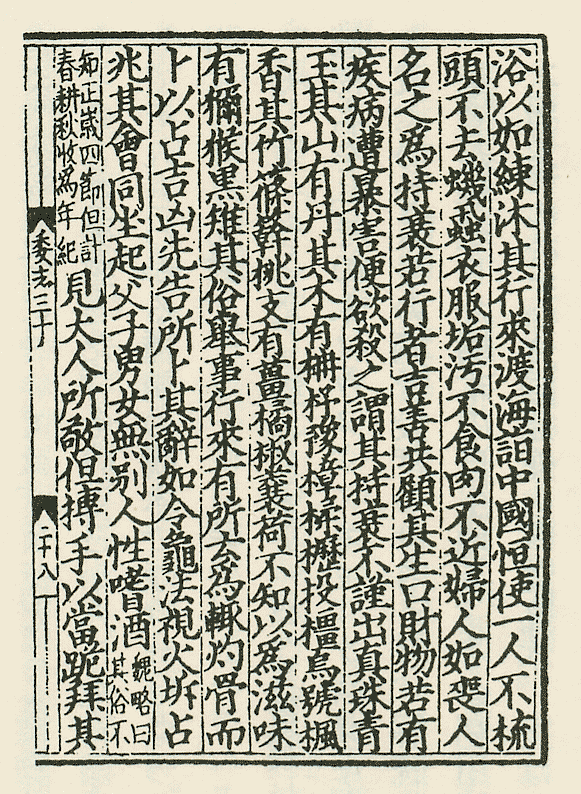 浴以如練沐其行來渡海詣中國恒使一人不梳
頭不去蟣蝨衣服垢汚不食肉不近婦人如喪人
名之爲持衰若行者吉善共顧其生口財物若有
疾病遭暴害便欲殺之謂其持衰不謹出真珠青
玉其山有丹其木有枏杼豫樟楺櫪投橿烏號楓
香其竹篠簳桃支有薑橘椒蘘荷不知以爲滋味
有獮猴黒雉其俗舉事行來有所云爲輒灼骨而
卜以占吉凶先告所卜其辭如令龜法視火坼占
兆其會同坐起父子男女無別人性嗜酒魏略曰其俗不
知正歲四節但計春耕秋收爲年紀見大人所敬但搏手以當跪拜其
委志三十
二十八